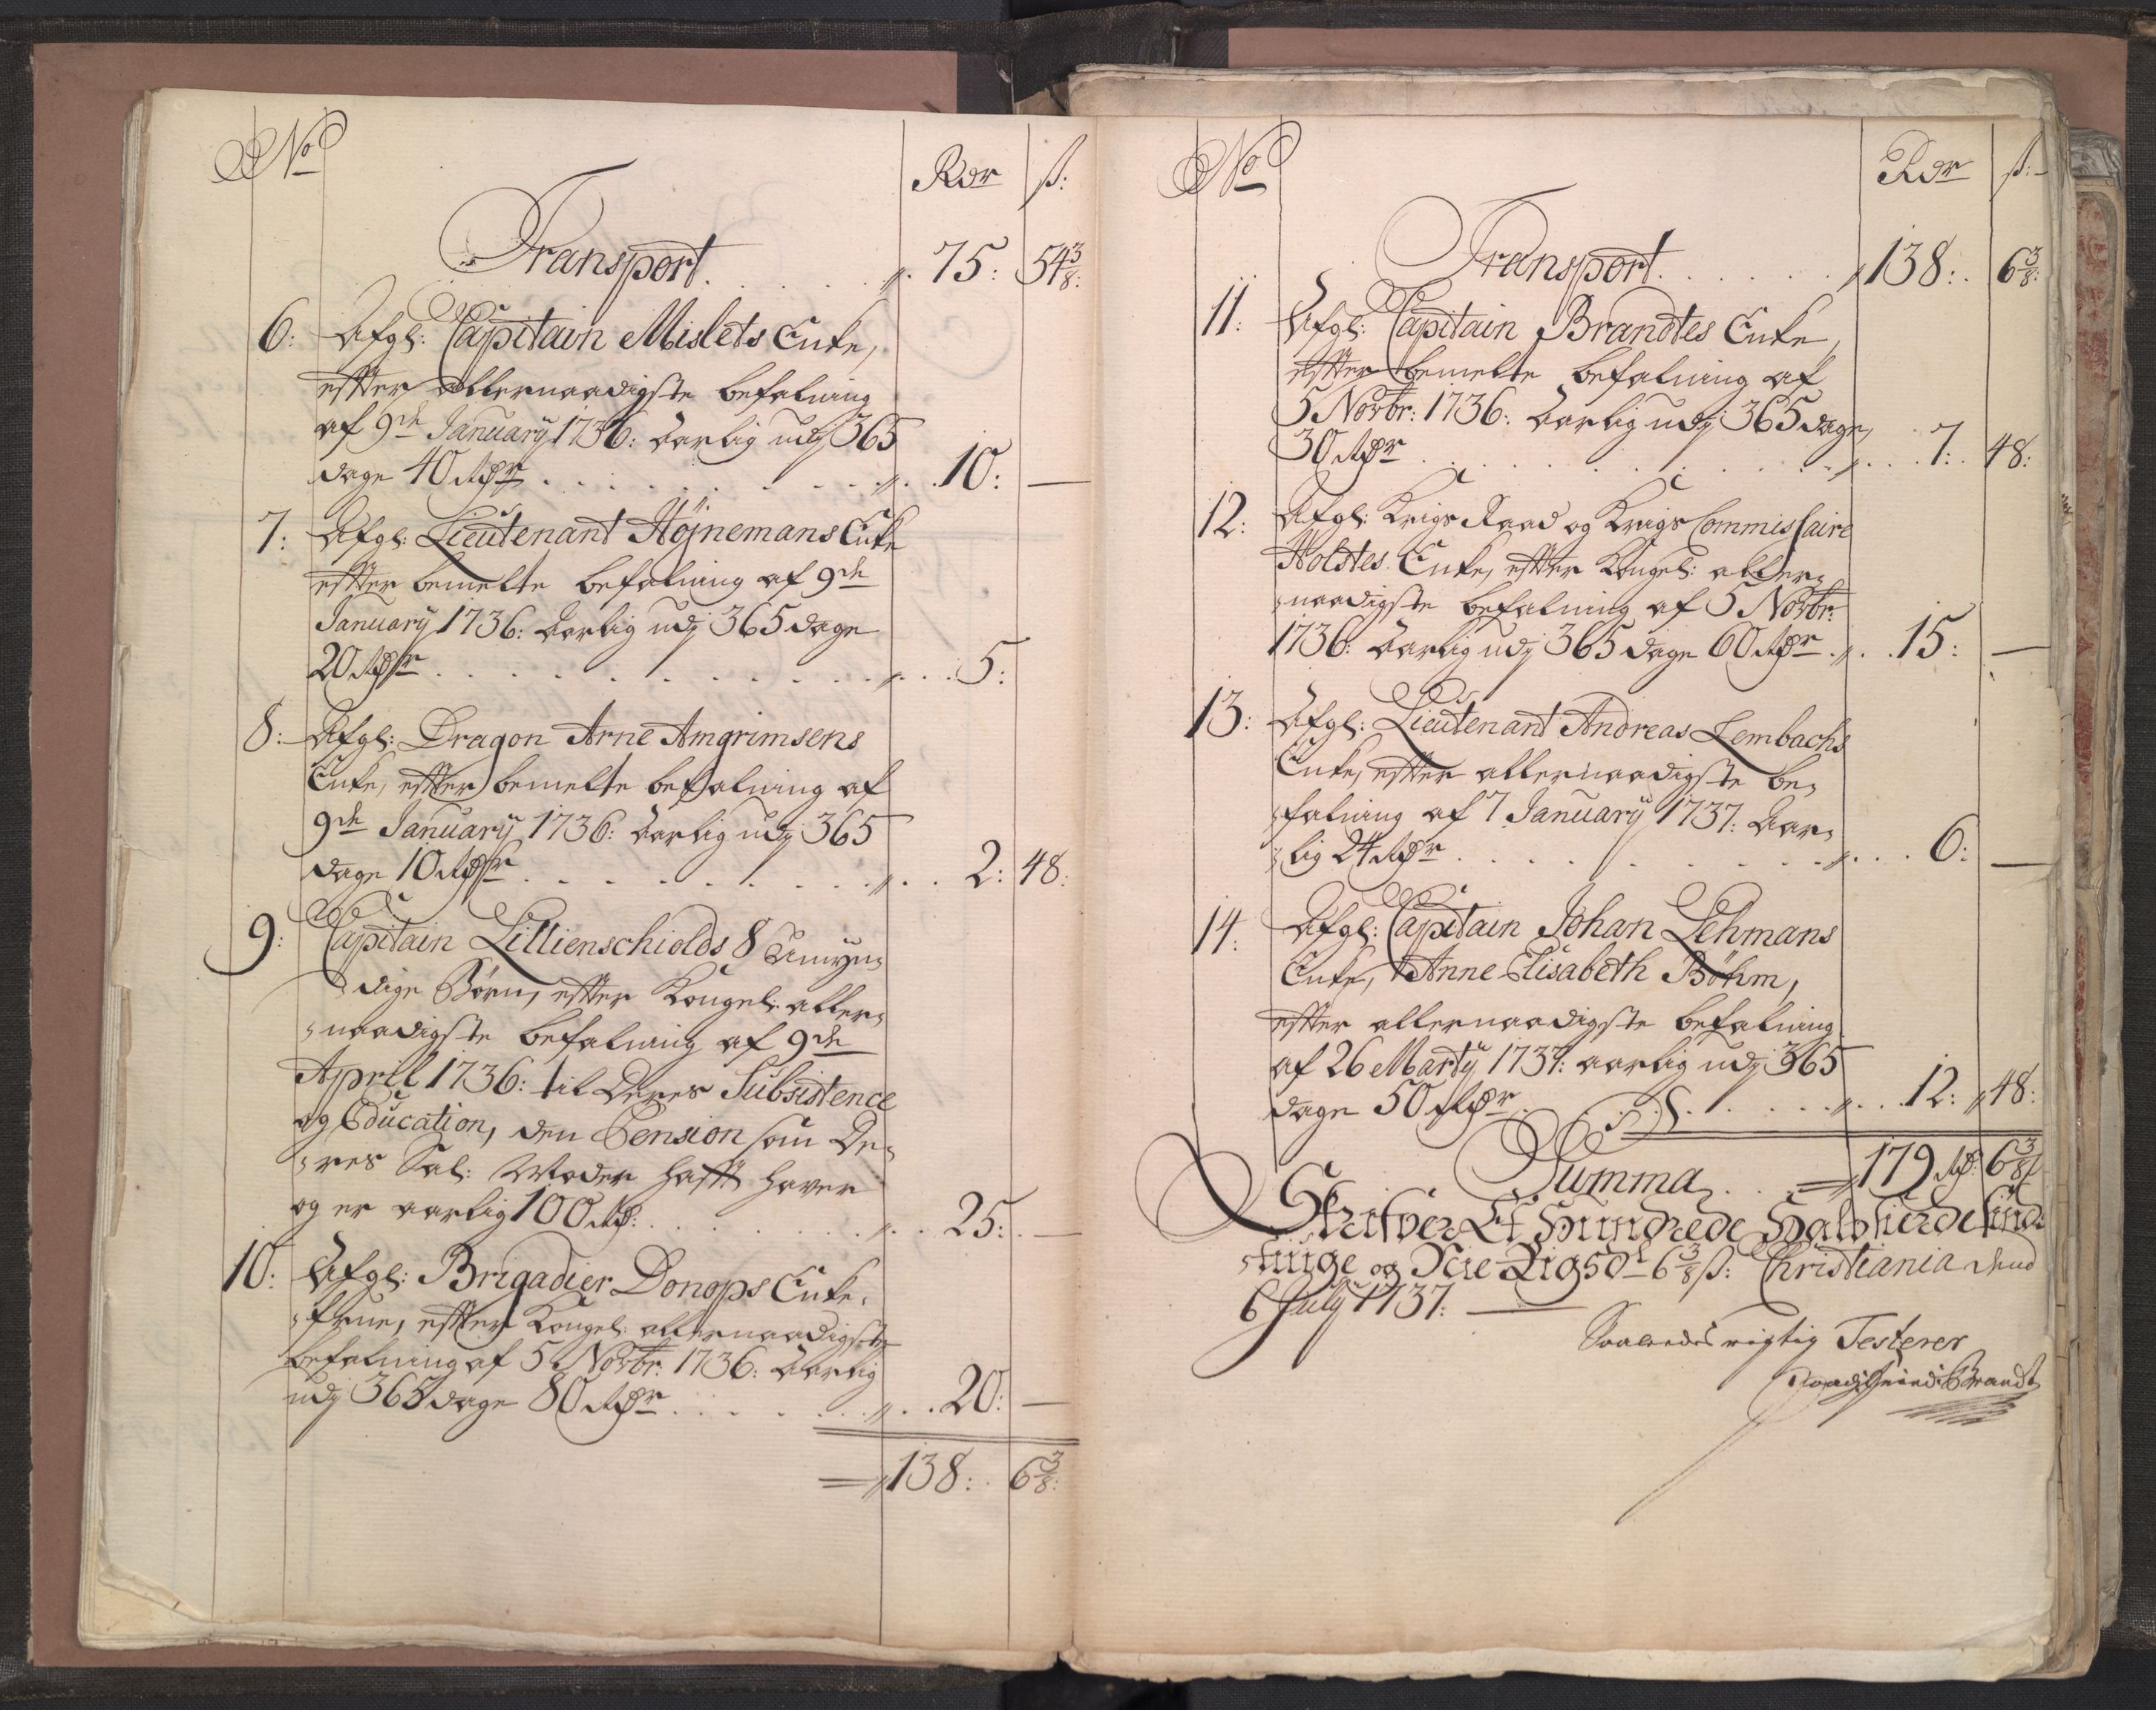 No
Rdr ß:
Transport . . . . . 75: 54 3/8:
6: Afgl: Capitain Mislets Enke,
efter allernaadigste befalning
af 9de January 1736: Aarlig udj 365
dage 40 Rdr . . . . . 10: —
7: Afgl: Lieutenant Höjnemans Enke
efter bemelte befalning af 9de
January 1736: Aarlig udj 365 dage
20 Rdr . . . . . 5:
8: Afgl: Dragon Arne Amgrimsens
Enke, efter bemelte befalning af
9de January 1736: Aarlig udj 365
dage 10 Rdr . . . . . 2: 48:
9: Capitain Lillienschiolds 8 Umyn-
dige Börn, efter Kongel: aller-
naadigste befalning af 9de
April 1736: til Deres Subsistence
og Education, den Pension som De-
res Sal: Moder hafft haver
og er aarlig 100 Rd: . . . . 25: —
10: Afgl: Brigadier Donops Enke-
frue, efter Kongel: allernaadigste
befalning af 5 Novbr: 1736: Aarlig
udj 365 dage 80 Rdr . . . . 20: —
138: 6 3/8:
No
Rdr ß:
Transport . . . . . 138: 6 3/8:
11: Afgl: Capitain Brandtes Enke,
efter bemelte befalning af
5 Novbr: 1736: Aarlig udj 365 dage,
30 Rdr . . . . . 7: 48:
12: Afgl: Krigs Raad og Krigs Commissaire
Holstes Enke, efter Kongel: aller-
naadigste befalning af 5 Novbr:
1736: Aarlig udj 365 dage 60 Rdr . . 15: —
13: Afgl: Lieutenant Andreas Lembachs
Enke, efter allernaadigste be-
falning af 7 January 1737: Aar-
lig 24 Rdr . . . . . 6: —
14: Afgl: Capitain Johan Lehmans
Enke, Anne Elisabeth Böhm,
efter allernaadigste befalning
af 26 Marty 1737: aarlig udj 365
dage 50 Rdr . . . . . 12: 48:
Summa . . 179 Rd: 6 3/8 ß
Skrifver Et Hundrede Halvfierdesinds
tiuge og Nie Rigsdl 6 3/8 ß: Christiania dend
6 July 1737:
Saaledes rigtig Testerer
Brandt